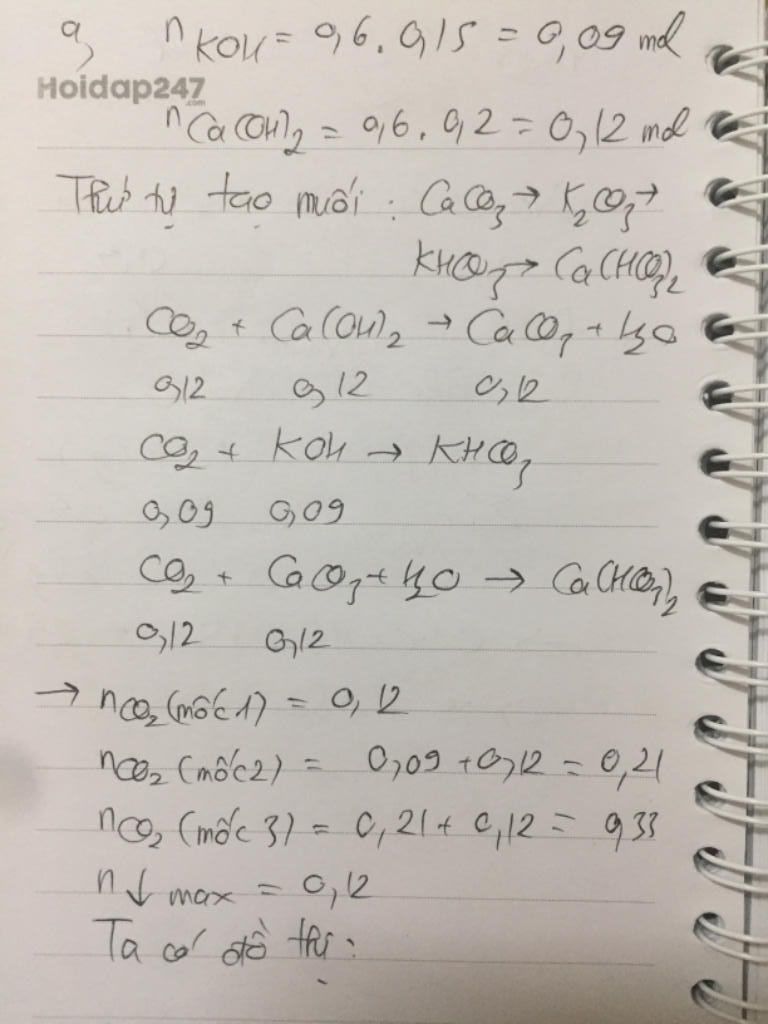 a, nKOH = 0,6 . 0,15 = 0,09 mol
Hoidap247
.com
nCa(OH)₂ = 0,6 . 0,2 = 0,12 mol
Thứ tự tạo muối : CaCO₃ → K₂CO₃ →
KHCO₃ → Ca(HCO₃)₂
CO₂ + Ca(OH)₂ → CaCO₃ + H₂O
0,12 0,12 0,12
CO₂ + KOH → KHCO₃
0,09 0,09
CO₂ + CaCO₃ + H₂O → Ca(HCO₃)₂
0,12 0,12
→ nCO₂ (mốc 1) = 0,12
nCO₂ (mốc 2) = 0,09 + 0,12 = 0,21
nCO₂ (mốc 3) = 0,21 + 0,12 = 0,33
n↓ max = 0,12
Ta có đồ thị :